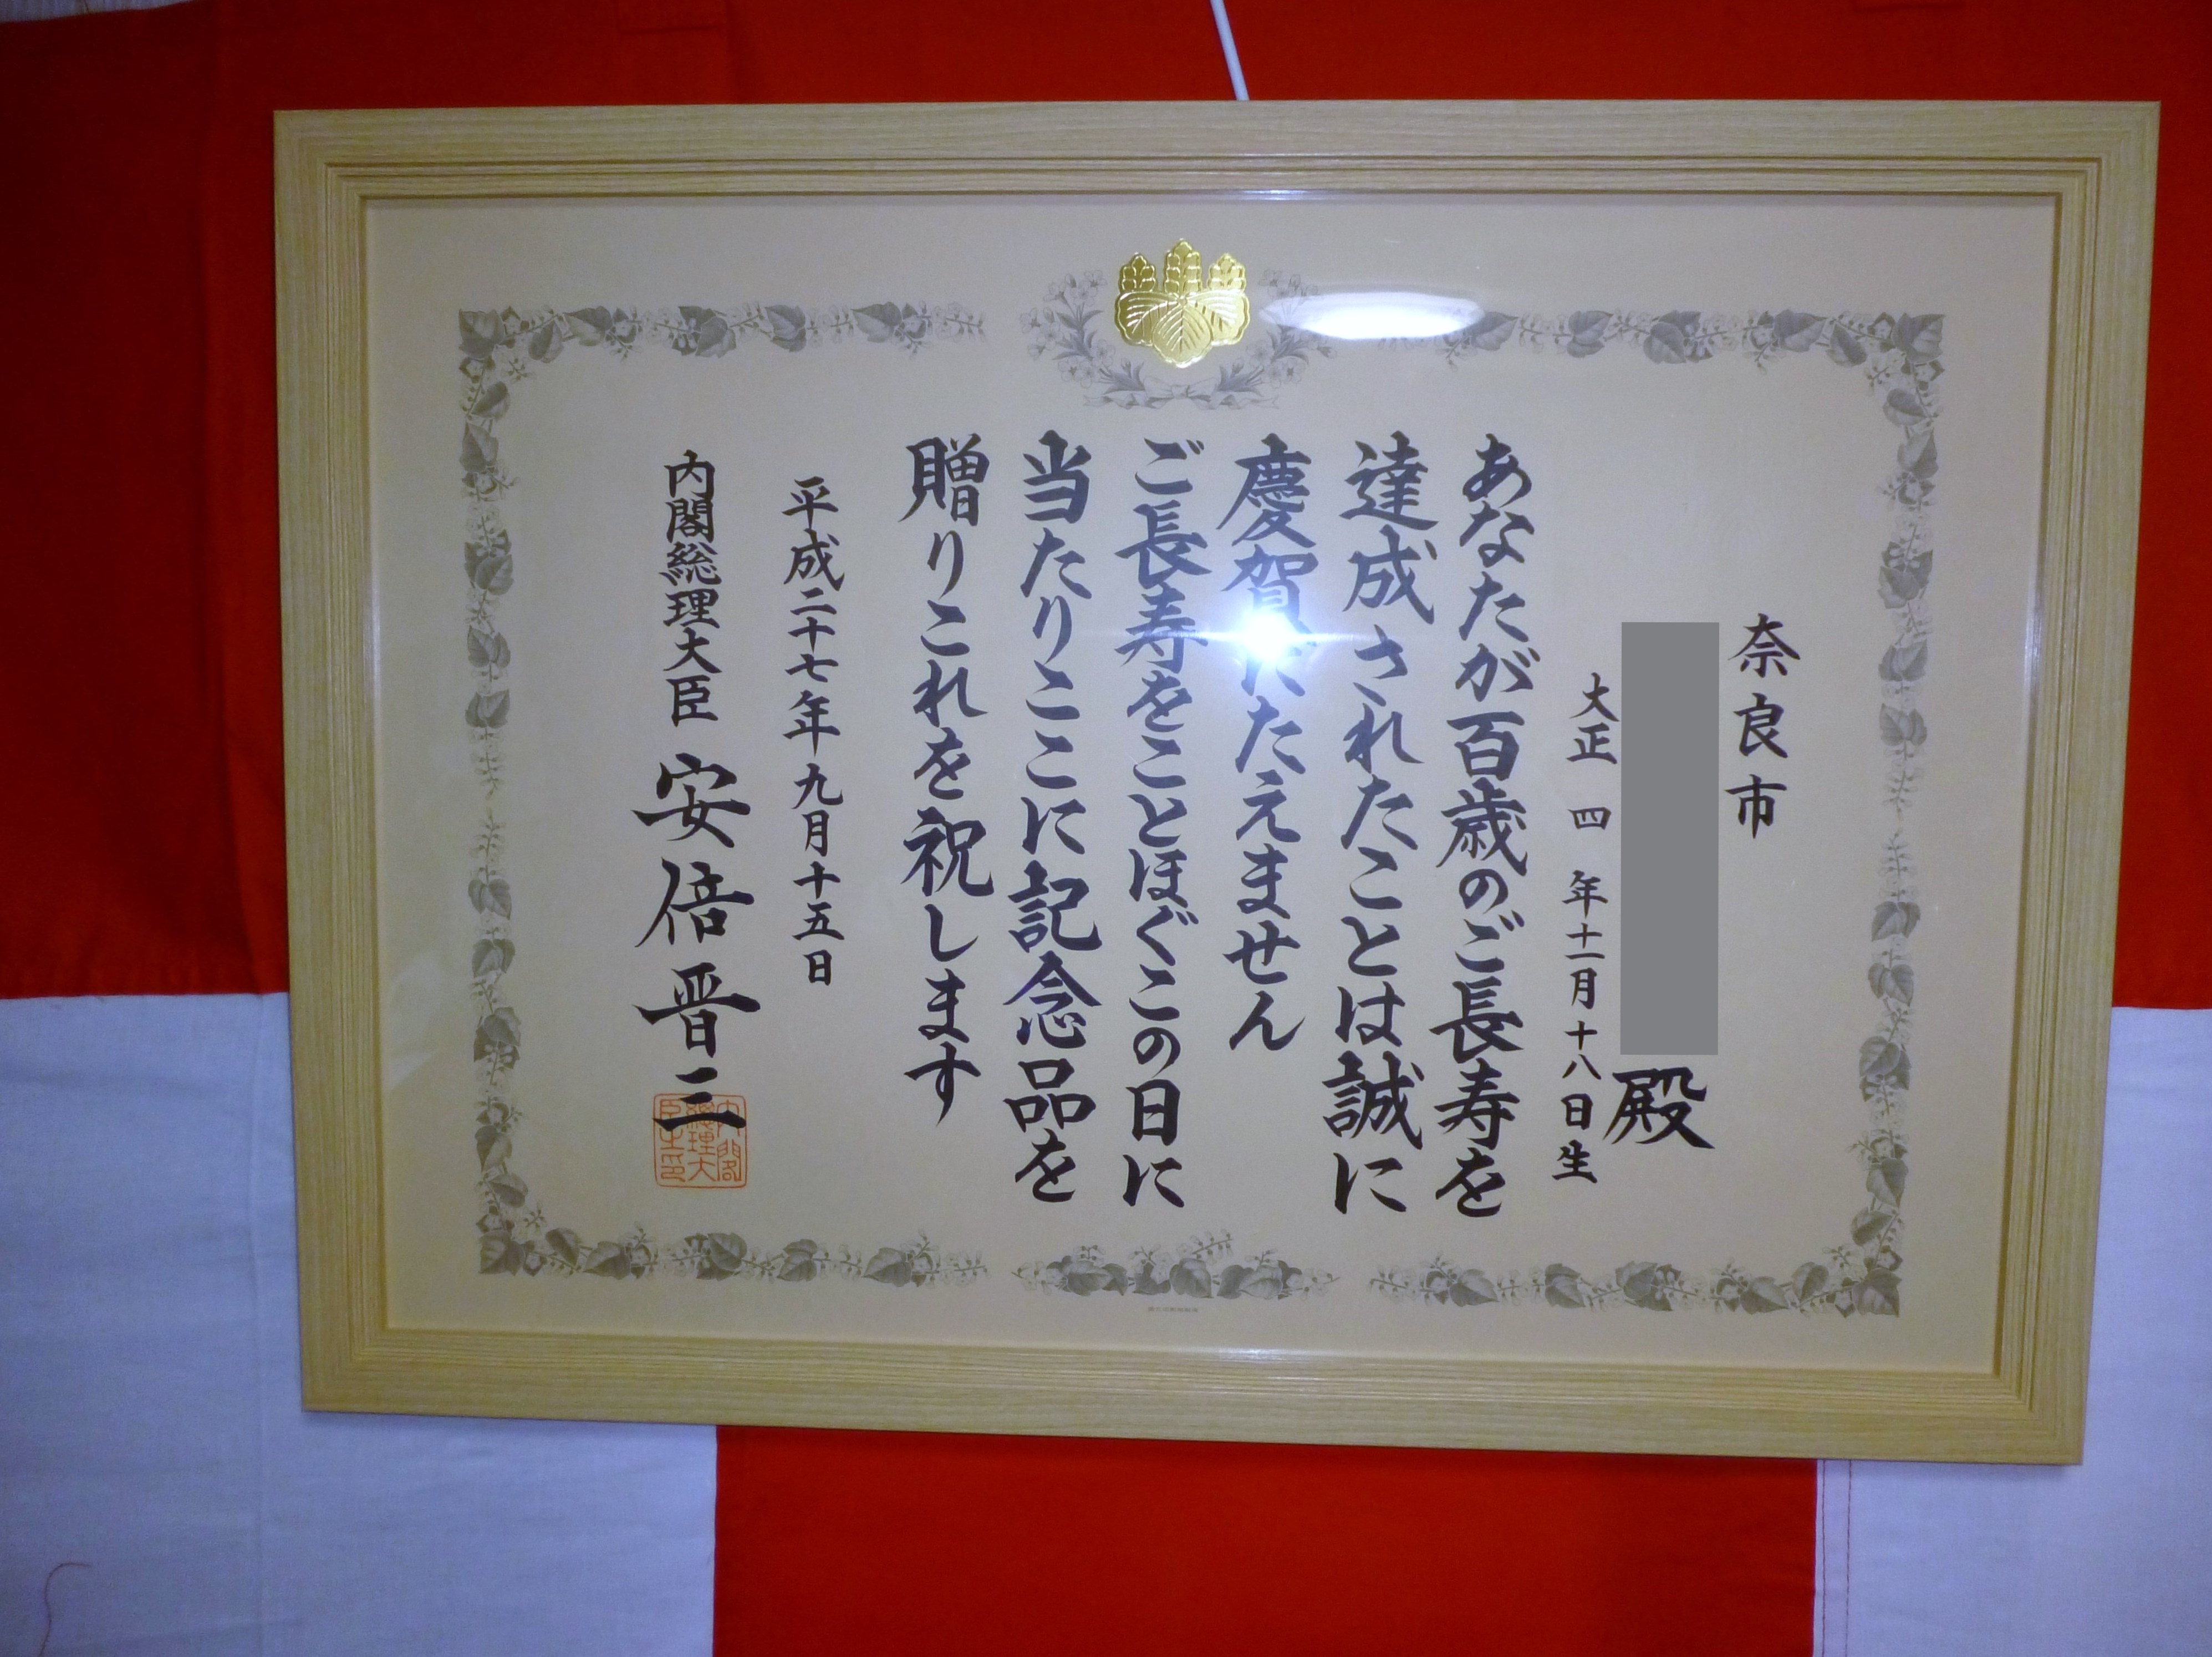 奈良市
殿
大正四年十一月十八日生
あなたが百歳のご長寿を
達成されたことは誠に
慶賀にたえません
ご長寿をことほぐこの日に
当たりここに記念品を
贈りこれを祝します
平成二十七年九月十五日
内閣総理大臣 安倍晋三
内閣總理大臣之印